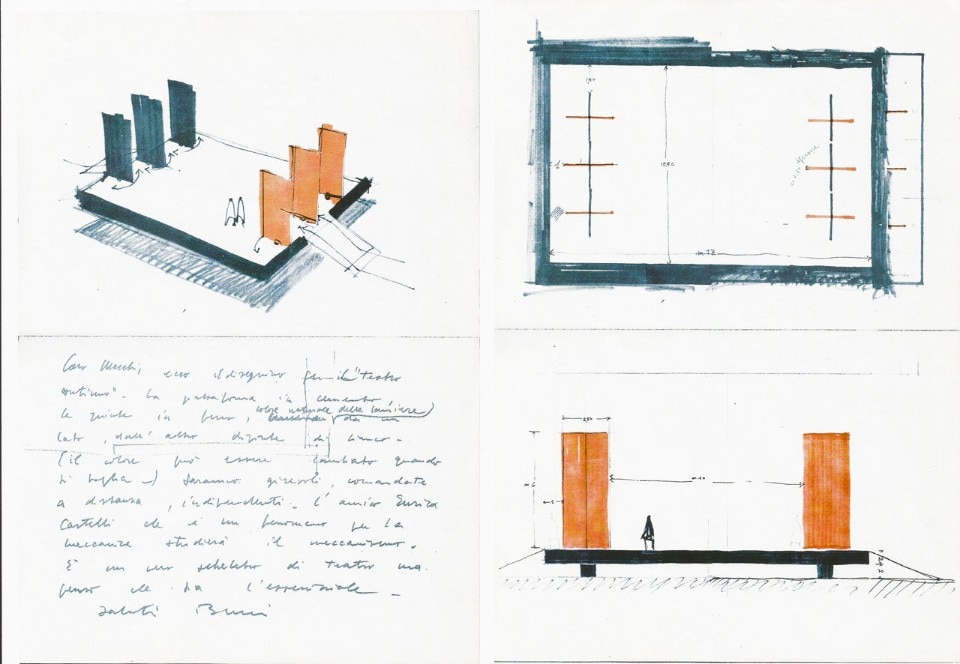 10,50
Caro Macchi, ecco il disegnino per il "teatro
continuo". La piattaforma in cemento,
le quinte in ferro, colore naturale delle lamiere) da un
lato, dall'altro dipinte di bianco -
(il colore può essere cambiato quando
si voglia -) saranno girevoli, comandate
a distanza, indipendenti - L'amico Enrico
Castelli che è un fenomeno per la
meccanica studierà il meccanismo.
È un vero scheletro di teatro ma
penso che ha l'essenziale -
saluti Burri